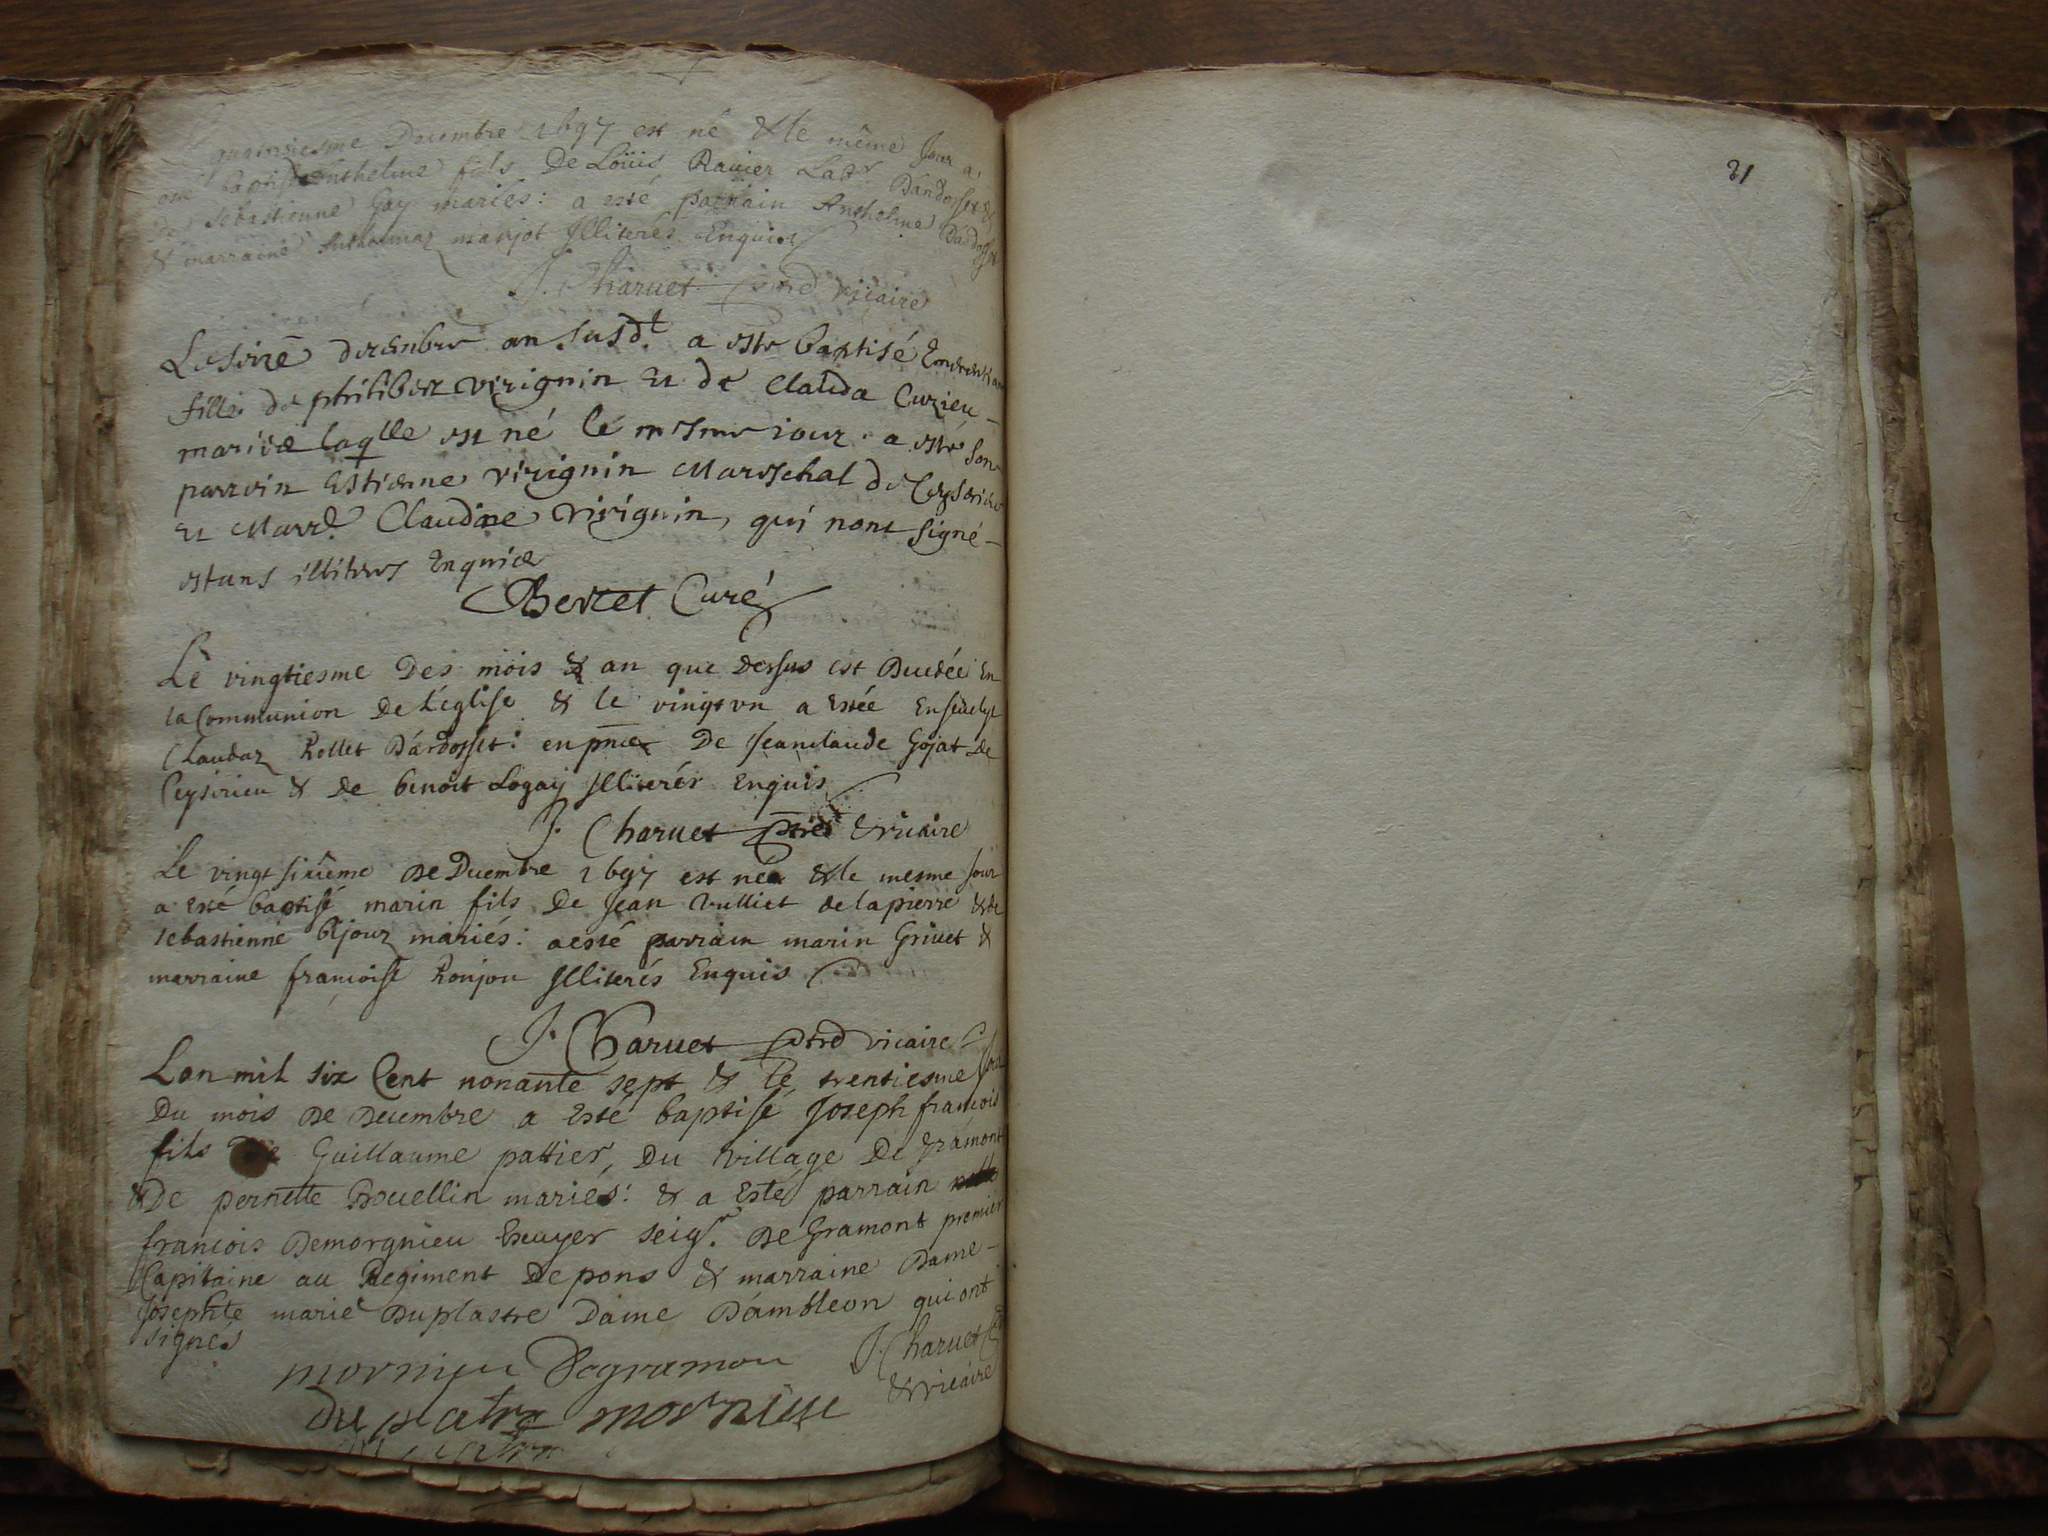 quinziesme Decembre 1697 est né & le même Jour a
esté baptisé Anthelme fils De Loüis Rauier Labr D'andosset &
De sebastienne Gay mariés: a esté parrain Anthelme
& marraine manjot Illiterés Enquis
J. Charuet ptre vicaire
Le seizē decembre an susd.t a este baptisé
fille de philibert virignin Et de Claüda Curieu
mariés laqlle est né le mesme iour a esté son
parrein Estienne virignin Mareschal de Ceyserieu
Et Marr.e Claudine virignin, qui nont signé
estans illiteres Enquis
Bertet Curé
Le vingtiesme Des mois & an que dessus est Decedée En
la Communion De L'église & le vingt vn a Estée Enseuelye
Claudaz Rollet D'ardosset: en pnce De Jeanclaude Gojat De
Ceysirieu & De benoit Logay Illiterés Enquis
J. Charuet ptre & vicaire
Le vingt sixiême De Decembre 1697 est né & le mesme Jour
a Esté baptisé marin fils De Jean Vulliet delapierre & de
sebastienne Bijouz mariés: a esté parrain marin Griuet &
marraine francoise Ronjon Illiterés Enquis
J. Charuet ptre vicaire
Lan mil six Cent nonante sept & le trentiesme Jour
Du mois De Decembre a Esté baptisé Joseph francois
fils De Guillaume pattier, Du village De gramont
& De pernette Bouellin mariés: & a Esté parrain
francois Demorgnieu Escuyer seig.r De Gramont premier
Capitaine au Regiment De pons & marraine Dame
Josephte marie Duplastre Dame D'ambleon qui ont
signés
J. Charuet
mornieu Degramon
& vicaire
du platre mornieu